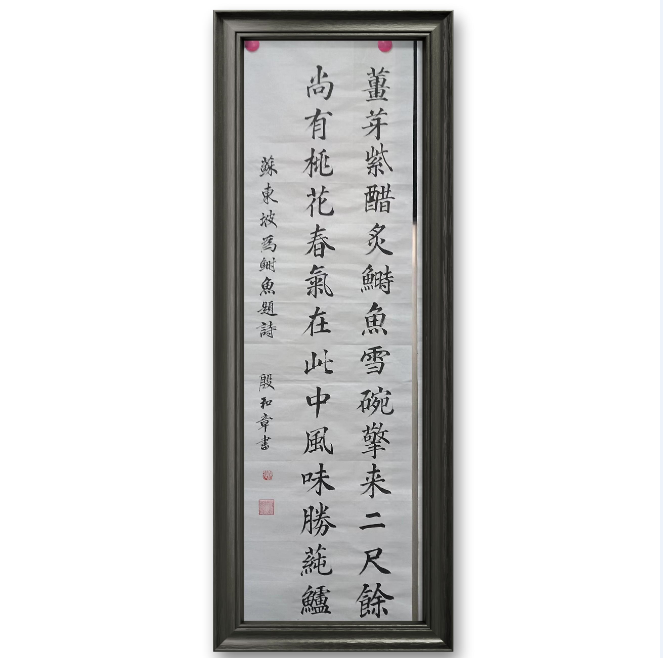 薑芽紫醋炙鰣魚雪碗擎来二尺餘
尚有桃花春氣在此中風味勝蒓鱸
蘇東坡為鰣魚題詩 殷和章書